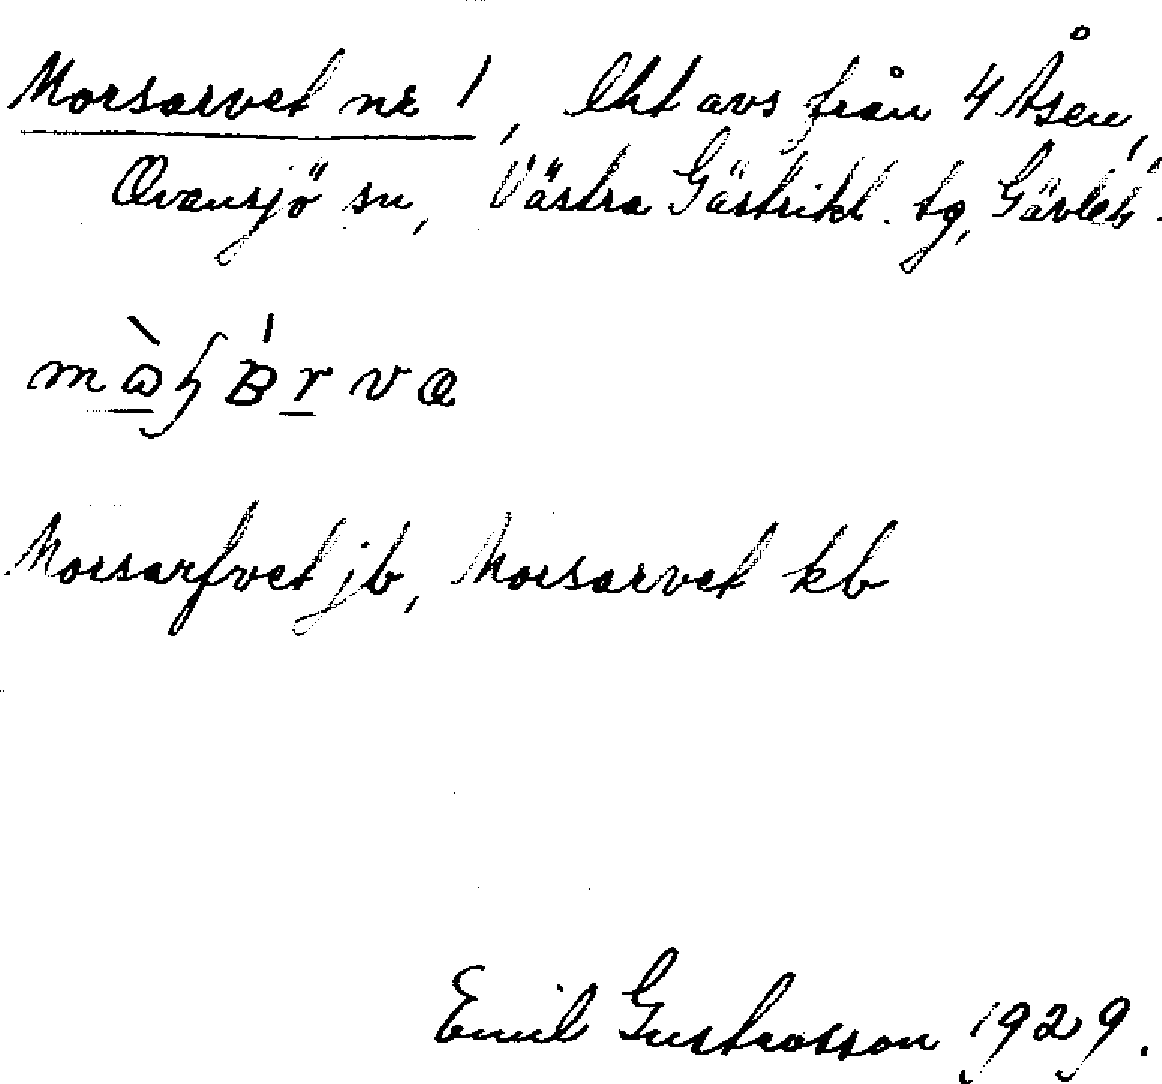 Morsarvet nr 1, lht avs från 4 Åsen,
Ovansjö sn, Västra Gästrikl. tg, Gävleb.
Morsarfvet jb, Morsarvet kb
Emil Gustavsson 1929.